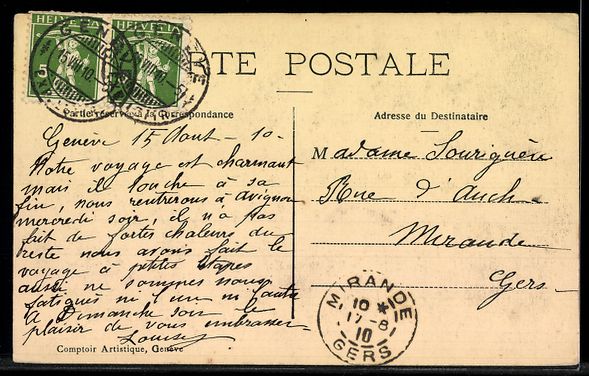 HELVETIA HELVETIA
5
GENÈVE
15.VIII.10
CARTE POSTALE
Partie réservée à la Correspondance
Adresse du Destinataire
Genève 15 Aout - 10 -
Notre voyage est charmant
mais il touche à sa
fin, nous rentrerons à Avignon
mercredi soir, il n'a pas
fait de fortes chaleurs du
reste nous avons fait le
voyage à petites étapes
aussi ne sommes nous
fatigués ni l'un ni l'autre
A Dimanche soir le
plaisir de vous embrasser
Louise
Madame Souriguère
Rue d'Auch
Mirande
Gers
MIRANDE
10 *
17-8
10
GERS
Comptoir Artistique, Genève